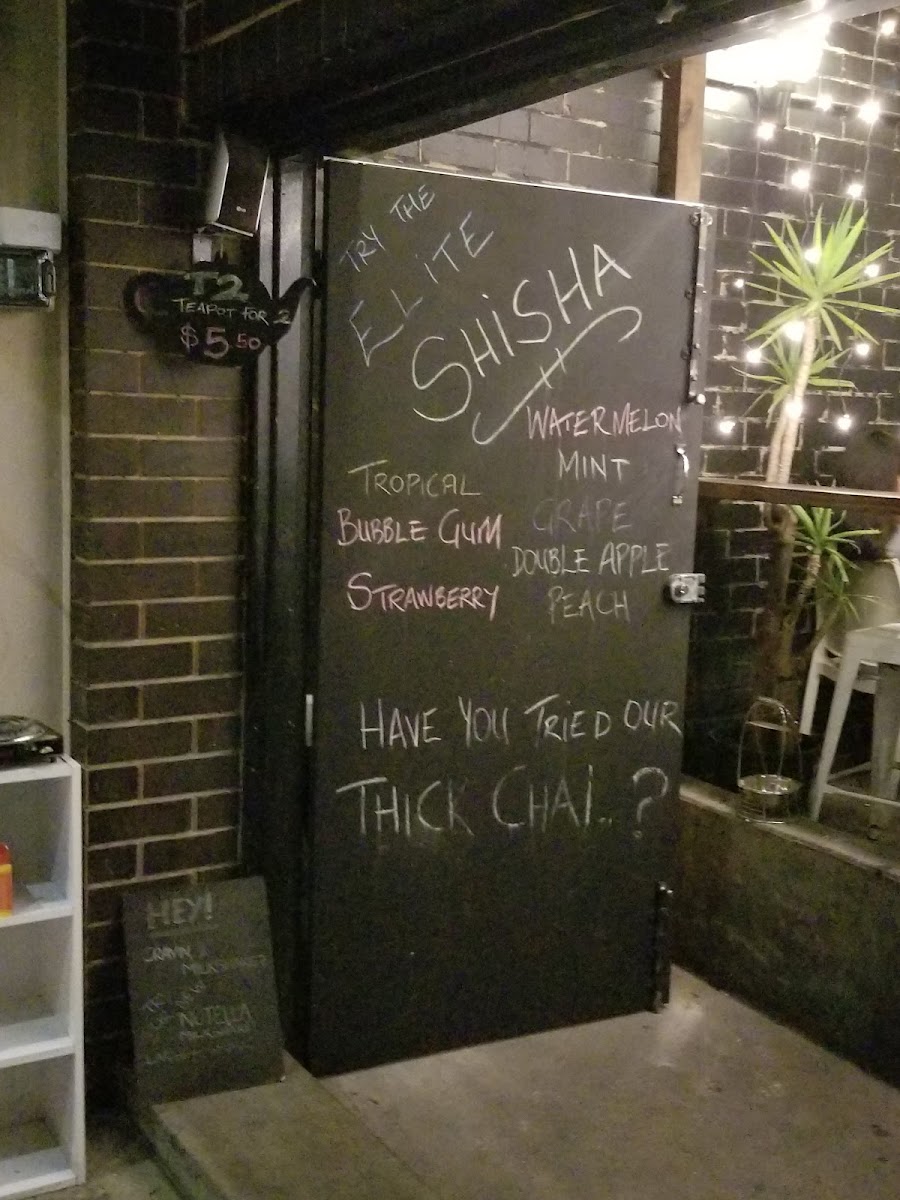 T2
TEAPOT FOR 2
$5.50
TRY THE
ELITE
SHISHA
WATERMELON
MINT
GRAPE
DOUBLE APPLE
PEACH
TROPICAL
BUBBLE GUM
STRAWBERRY
HAVE YOU TRIED OUR
THICK CHAI..?
HEY!
NUTELLA